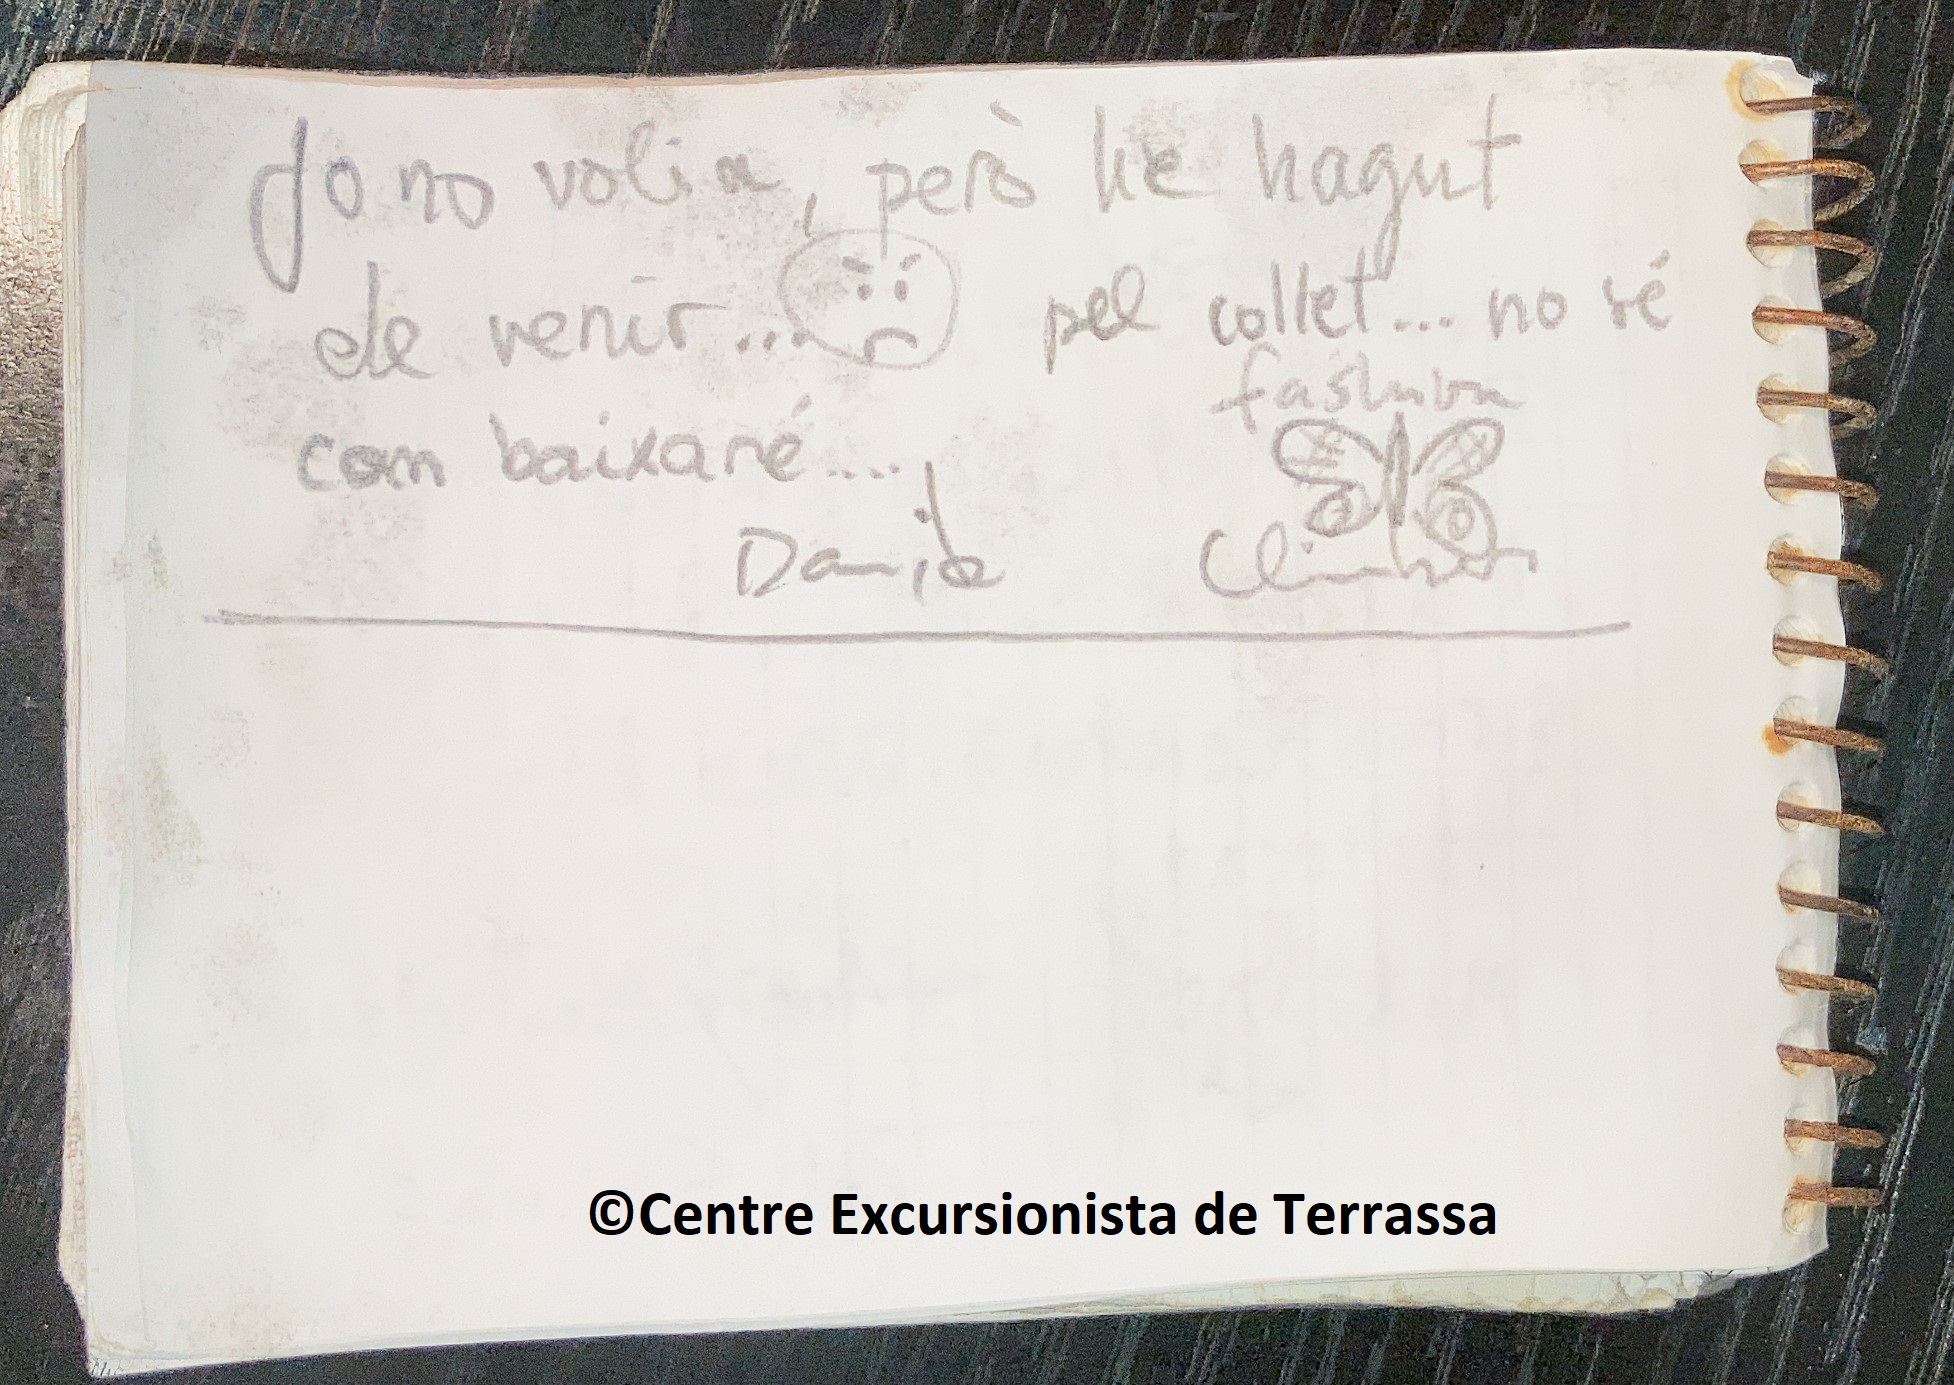 Jo no volia, però he hagut
de venir... pel collet... no sé
com baixaré....
fashion
David
Climbers
©Centre Excursionista de Terrassa